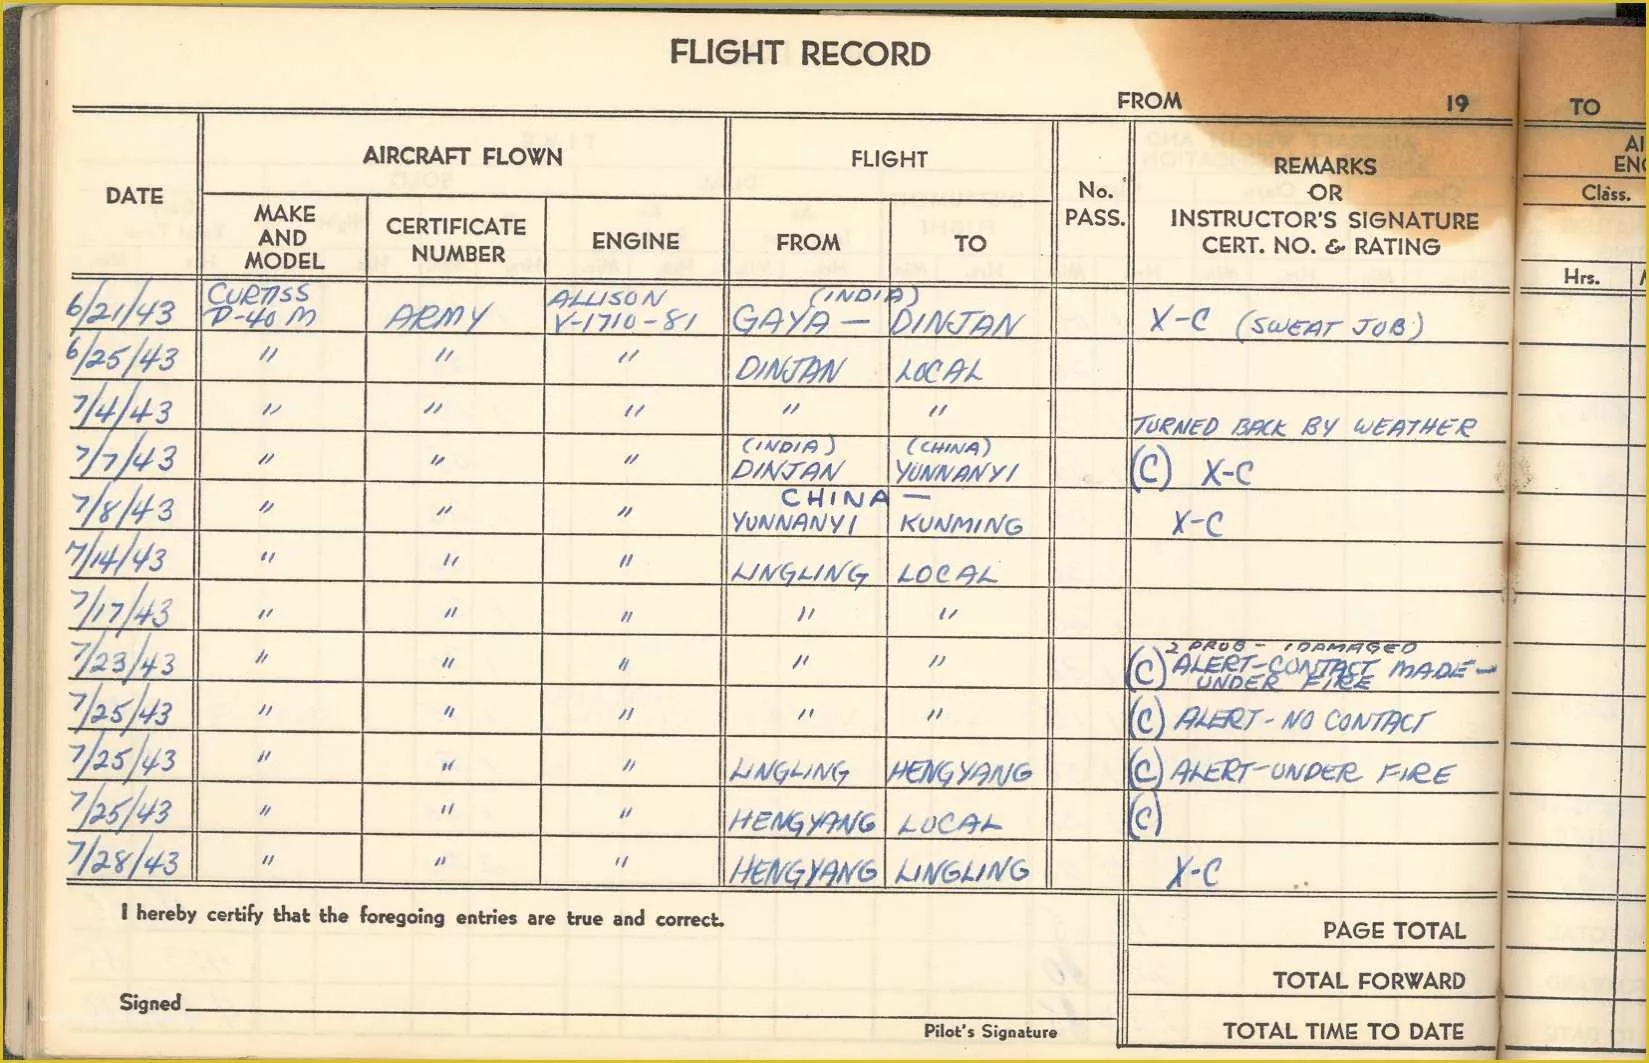 FLIGHT RECORD
FROM 19 TO
DATE AIRCRAFT FLOWN FLIGHT No. PASS. REMARKS OR INSTRUCTOR'S SIGNATURE CERT. NO. & RATING
MAKE AND MODEL CERTIFICATE NUMBER ENGINE FROM TO Class.
Hrs.
6/21/43 CURTISS P-40M ARMY ALLISON V-1710-81 GAYA — (INDIA) DINJAN X-C (SWEAT JOB)
6/25/43 " " " DINJAN LOCAL
7/4/43 " " " " " TURNED BACK BY WEATHER
7/7/43 " " " (INDIA) DINJAN (CHINA) YUNNANYI (C) X-C
7/8/43 " " " CHINA — YUNNANYI KUNMING X-C
7/14/43 " " " LINGLING LOCAL
7/17/43 " " " " "
7/23/43 " " " " " (C) 2 PROB - 1 DAMAGED ALERT-CONTACT MADE- UNDER FIRE
7/25/43 " " " " " (C) ALERT-NO CONTACT
7/25/43 " " " LINGLING HENGYANG (C) ALERT-UNDER FIRE
7/25/43 " " " HENGYANG LOCAL (C)
7/28/43 " " " HENGYANG LINGLING X-C
I hereby certify that the foregoing entries are true and correct.
PAGE TOTAL
TOTAL FORWARD
Signed
Pilot's Signature
TOTAL TIME TO DATE